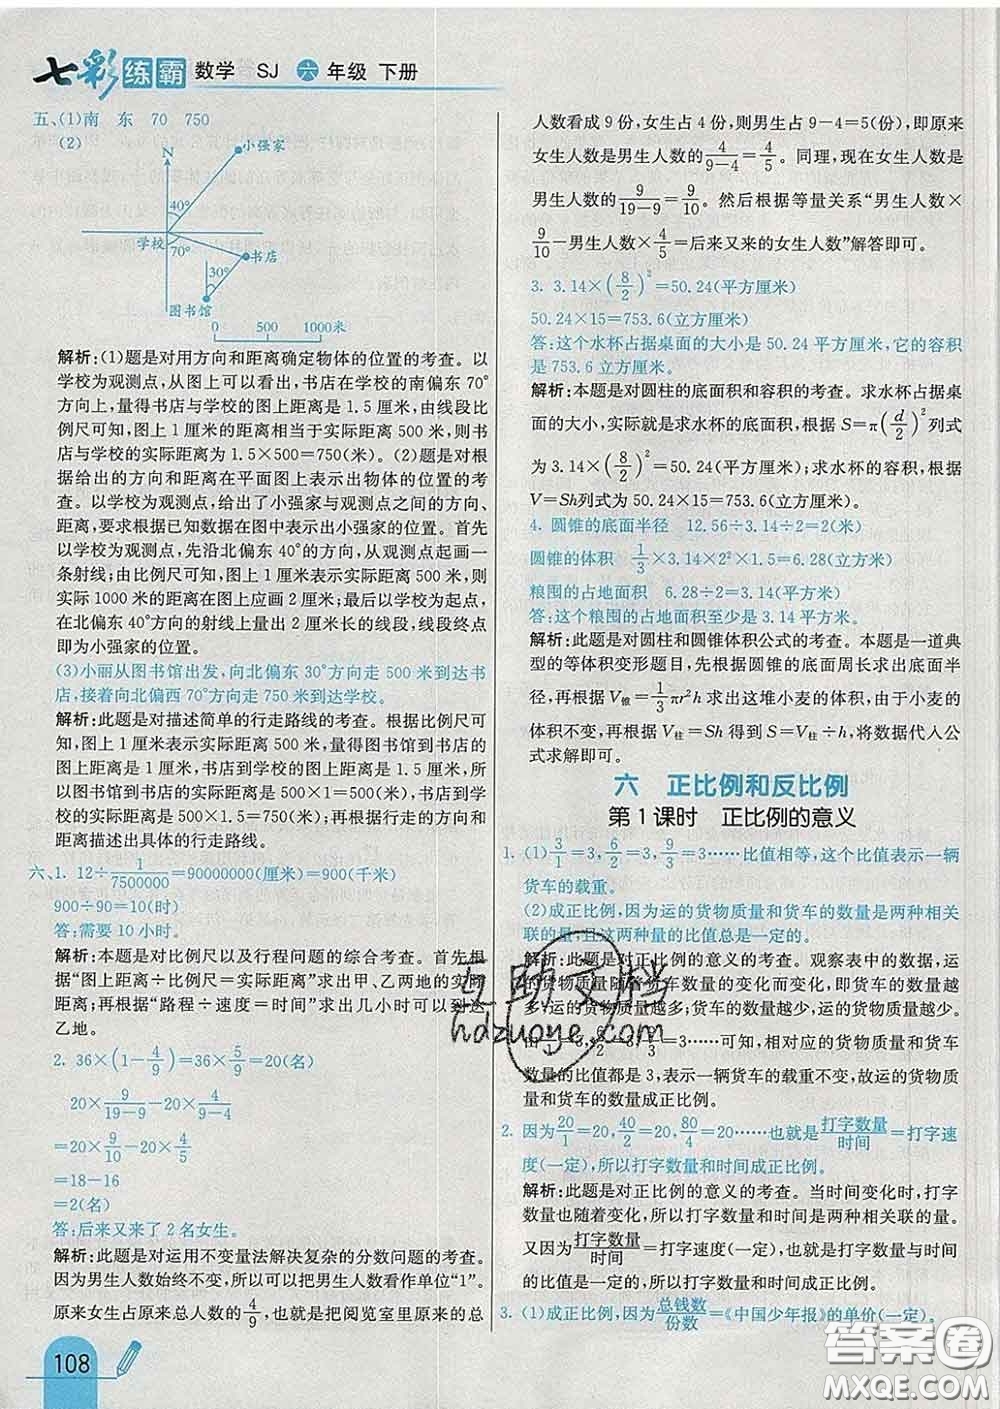 七彩练霸 数学 SJ 六年级 下册
五、(1)南 东 70 750
(2)
N
小强家
40°
学校
70°
书店
30°
图书馆
0 500 1000米
解析:(1)题是对用方向和距离确定物体的位置的考查。以
学校为观测点,从图上可以看出,书店在学校的南偏东70°
方向上,量得书店与学校的图上距离是1.5厘米,由线段比
例尺可知,图上1厘米的距离相当于实际距离500米,则书
店与学校的实际距离为1.5×500=750(米)。(2)题是对根
据给出的方向和距离在平面图上表示出物体的位置的考
查。以学校为观测点,给出了小强家与观测点之间的方向、
距离,要求根据已知数据在图中表示出小强家的位置。首先
以学校为观测点,先沿北偏东40°的方向,从观测点起画一
条射线;由比例尺可知,图上1厘米表示实际距离500米,则
实际1000米的距离在图上应画2厘米;最后以学校为起点,
在北偏东40°方向的射线上量出2厘米长的线段,线段终点
即为小强家的位置。
(3)小丽从图书馆出发,向北偏东30°方向走500米到达书
店,接着向北偏西70°方向走750米到达学校。
解析:此题是对描述简单的行走路线的考查。根据比例尺可
知,图上1厘米表示实际距离500米,量得图书馆到书店的
图上距离是1厘米,书店到学校的图上距离是1.5厘米,所
以图书馆到书店的实际距离是500米,书店到学校的实际距
离为1.5×500=750(米);再根据行走的方向和
距离描述出具体的行走路线。
六、1. 12÷1/7500000=90000000(厘米)=900(千米)
900÷90=10(时)
答:需要10小时。
解析:本题是对比例尺以及行程问题的综合考查。首先根
据“图上距离÷比例尺=实际距离”求出甲、乙两地的实际
距离;再根据“路程÷速度=时间”求出几小时可以到达
乙地。
2. 36×(1-4/9)=36×5/9=20(名)
20×9/(19-9)-20×4/(9-4)
=20×9/10-20×4/5
=18-16
=2(名)
答:后来又来了2名女生。
解析:此题是对运用不变量法解决复杂的分数问题的考查。
因为男生人数始终不变,所以可以把男生人数看作单位“1”。
原来女生占原来总人数的4/9,也就是把阅览室里原来的总
人数看成9份,女生占4份,则男生占9-4=5(份),即原来
女生人数是男生人数的4/(9-4)=4/5。同理,现在女生人数是
男生人数的9/(19-9)=9/10。然后根据等量关系“男生人数×
9/10-男生人数×4/5=后来又来的女生人数”解答即可。
3. 3.14×(8/2)²=50.24(平方厘米)
50.24×15=753.6(立方厘米)
答:这个水杯占据桌面的大小是50.24平方厘米,它的容积
是753.6立方厘米。
解析:本题是对圆柱的底面积和容积的考查。求水杯占据桌
面的大小,实际就是求水杯的底面积,根据S=π(d/2)²列式
为3.14×(8/2)²=50.24(平方厘米);求水杯的容积,根据
V=Sh列式为50.24×15=753.6(立方厘米)。
4. 圆锥的底面半径 12.56÷3.14÷2=2(米)
圆锥的体积 1/3×3.14×2²×1.5=6.28(立方米)
粮囤的占地面积 6.28÷2=3.14(平方米)
答:这个粮囤的占地面积至少是3.14平方米。
解析:此题是对圆柱和圆锥体积公式的考查。本题是一道典
型的等体积变形题目,先根据圆锥的底面周长求出底面半
径,再根据V锥=1/3πr²h求出这堆小麦的体积,由于小麦的
体积不变,再根据V柱=Sh得到S=V柱÷h,将数据代入公
式求解即可。
六 正比例和反比例
第1课时 正比例的意义
1. (1)3/1=3,6/2=3,9/3=3……比值相等,这个比值表示一辆
货车的载重。
(2)成正比例,因为运的货物质量和货车的数量是两种相关
联的量,且这两种量的比值总是一定的。
解析:此题是对正比例的意义的考查。观察表中的数据,运
的货物质量随着货车数量的变化而变化,即货车的数量越
多,运的货物质量越多;货车的数量越少,运的货物质量越少。
由3/1=3,6/2=3,9/3=3……可知,相对应的货物质量与货车
数量的比值都是3,表示一辆货车的载重不变,故运的货物质
量和货车的数量成正比例。
2. 因为20/1=20,40/2=20,80/4=20……也就是打字数量/时间=打字速
度(一定),所以打字数量和时间成正比例。
解析:此题是对正比例的意义的考查。当时间变化时,打字
数量也随着变化,所以打字数量和时间是两种相关联的量。
又因为打字数量/时间=打字速度(一定),所以打字数量与时间
的比值一定,所以打字数量和时间成正比例。
3. (1)成正比例,因为总钱数/份数=《中国少年报》的单价(一定)。
108
互助文档
hdzuoye.com
答案圈
MXQE.COM